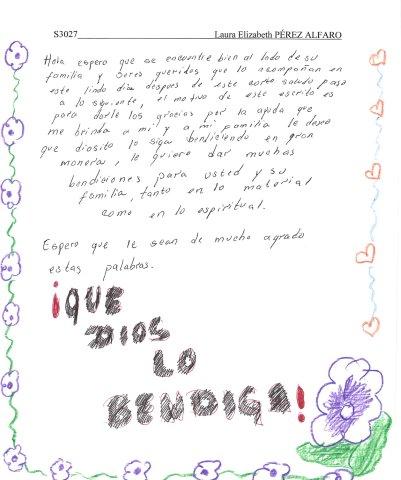 S3027 Laura Elizabeth PÉREZ ALFARO
Hola espero que se encuentre bien al lado de su
familia y seres queridos que lo acompañan en
este lindo dia despues de este corto saludo paso
a lo siguiente, el motivo de este escrito es
para darle las gracias por la ayuda que
me brinda a mi y a mi familia le deseo
que diosito lo siga bendiciendo en gran
manera, le quiero dar muchas
bendiciones para usted y su
familia, tanto en lo material
como en lo espiritual.
Espero que le sean de mucho agrado
estas palabras.
¡QUE
DIOS
LO
BENDIGA!